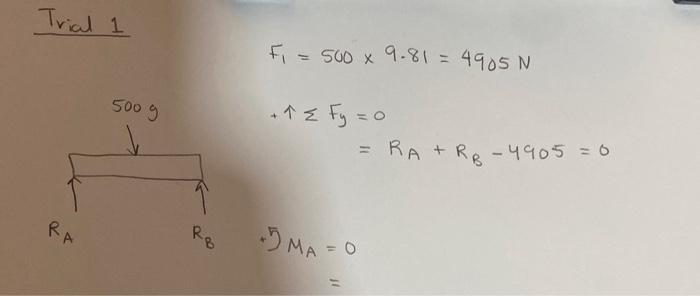 Trial 1
F₁ = 500 x 9.81 = 4905 N
500 g
+↑ Σ Fy = 0
= RA + RB - 4905 = 0
RA
RB
+↺ MA = 0
=